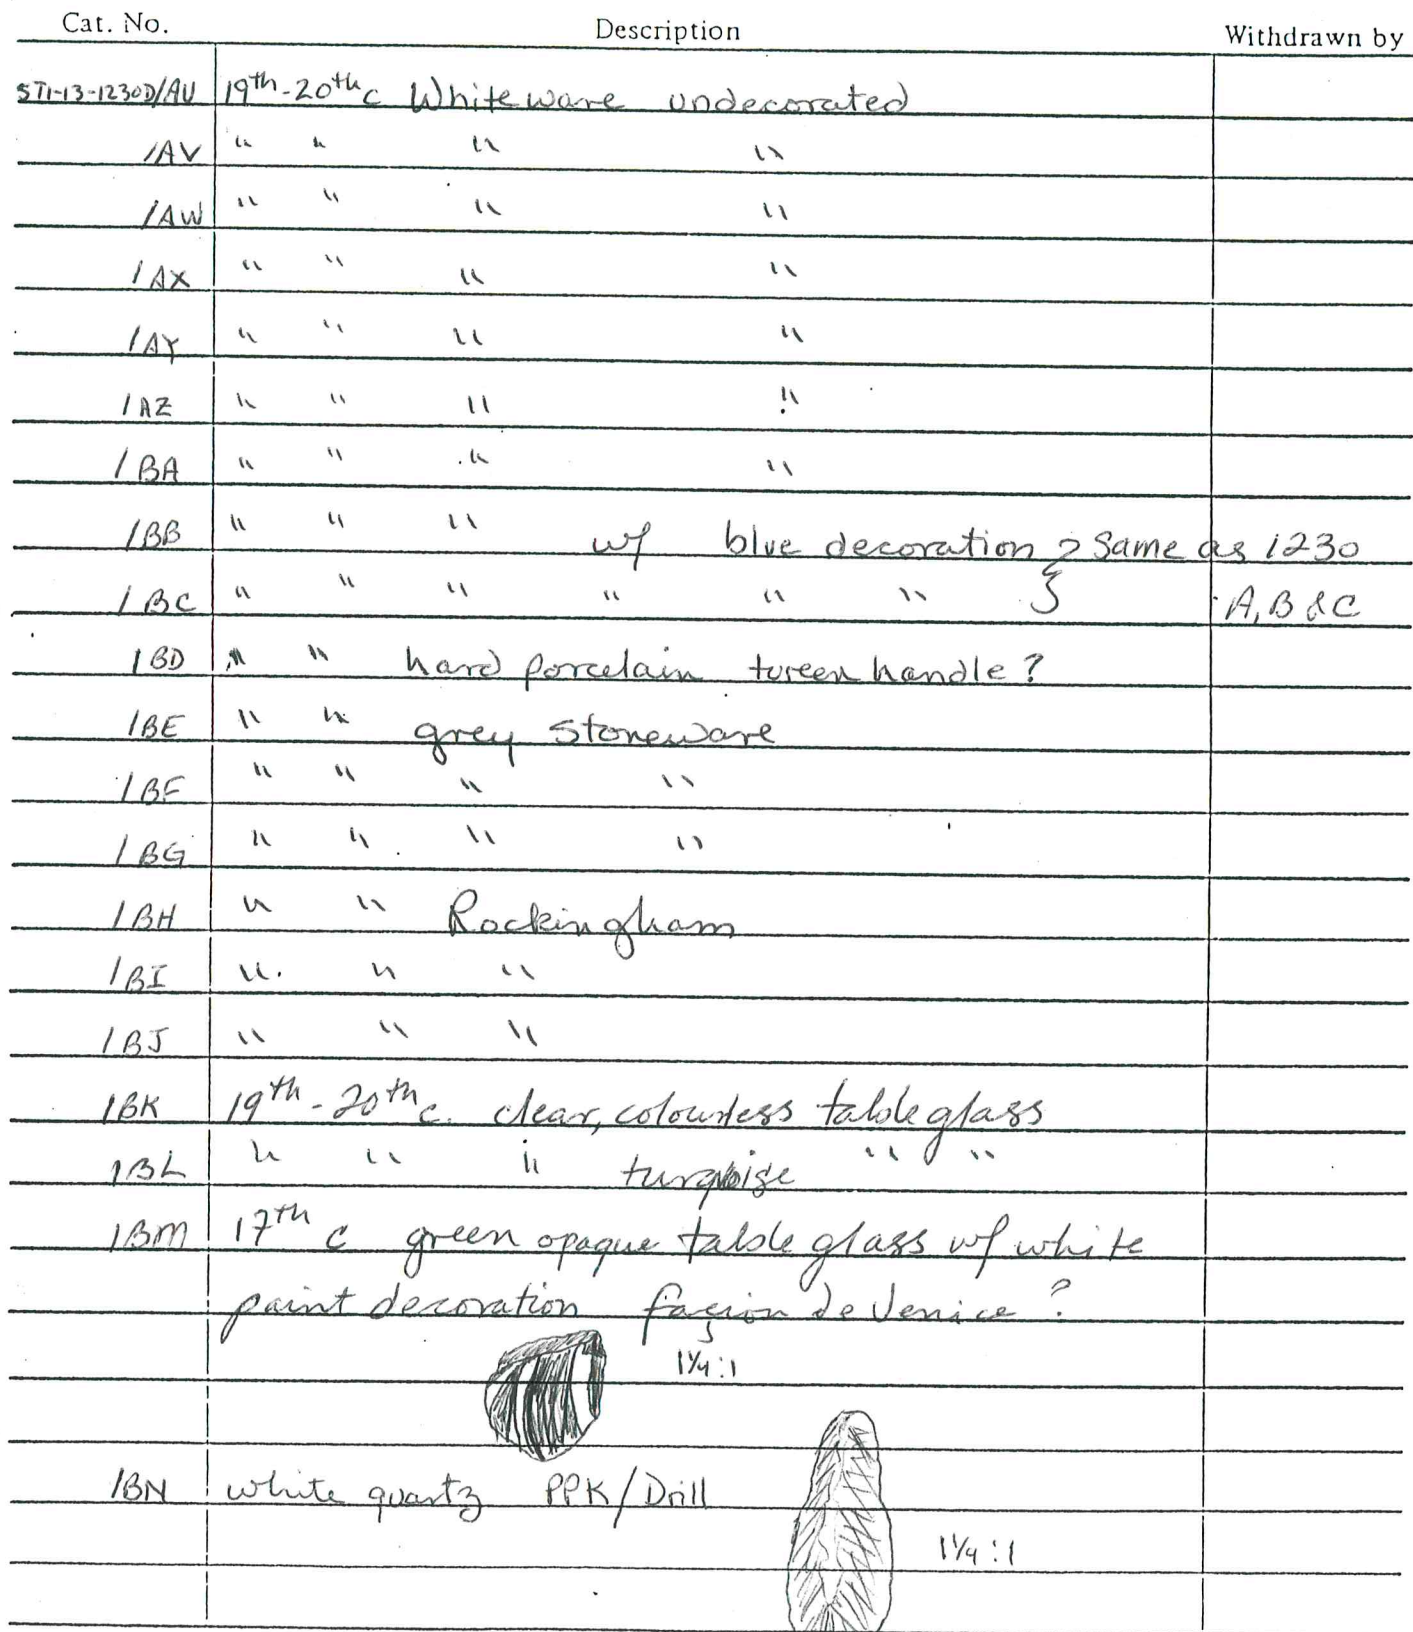 Cat. No. Description Withdrawn by
ST1-13-1230D/AU 19th-20th c Whiteware undecorated
/AV " " " "
/AW " " " "
/AX " " " "
/AY " " " "
/AZ " " " "
/BA " " " "
/BB " " " w/ blue decoration } Same as 1230
/BC " " " " " " } A, B & C
/BD " " hard porcelain tureen handle?
/BE " " grey stoneware
/BF " " " "
/BG " " " "
/BH " " Rockingham
/BI " " "
/BJ " " "
/BK 19th-20th c. clear, colourless table glass
/BL " " " turquoise " "
/BM 17th c green opaque table glass w/ white
paint decoration façion de Venice?
1¼:1
/BN white quartz PPK/Drill
1¼:1